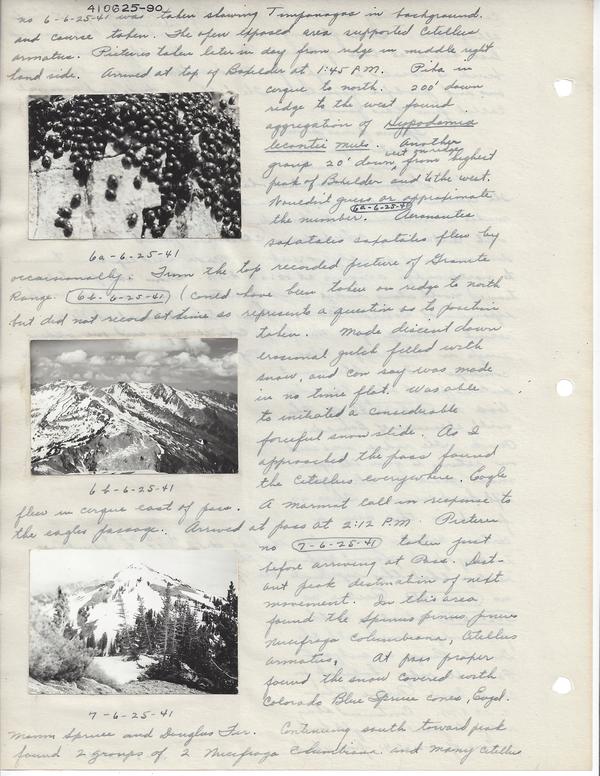 410625-90
no 6-6-25-41 was taken showing Timpanogas in background.
and course taken. The open exposed area supported Citellus
armatus. Pictures taken later in day from ridge in middle right
hand side. Arrived at top of Boulder at 1:45 P.M. Pika in
cirque to north. 200' down
ridge to the west found
aggregation of Hypodamia
lecontii muls. Another
group 20' down west on ridge from highest
peak of Boulder and to the west.
Wouldn't guess or approximate
the number. 6a-6-25-41 Aeronautes
saxatalis saxatalis flew by
6a-6-25-41
occasionally. From the top recorded picture of Granite
Range. 6b-6-25-41 (Could have been taken on ridge to north
but did not record at time so represents a question as to position
taken. Made descent down
erosional gulch filled with
snow, and can say was made
in no time flat. Was able
to initiated a considerable
forceful snow slide. As I
approached the pass found
the Citellus everywhere. Eagle
6b-6-25-41
flew in cirque east of pass. A marmot call in response to
the eagles passage. Arrived at pass at 2:12 P.M. Picture
no 7-6-25-41 taken just
before arriving at Pass. Dist-
ant peak destination of next
movement. In this area
found the Spinus pinus pinus
Nucifraga Columbiana, Citellus
armatus, At pass proper
found the snow covered with
Colorado Blue Spruce cones, Engel.
7-6-25-41
Mann Spruce and Douglas Fir. Continuing south toward peak
found 2 groups of 2 Nucifraga Columbiana and many Citellus